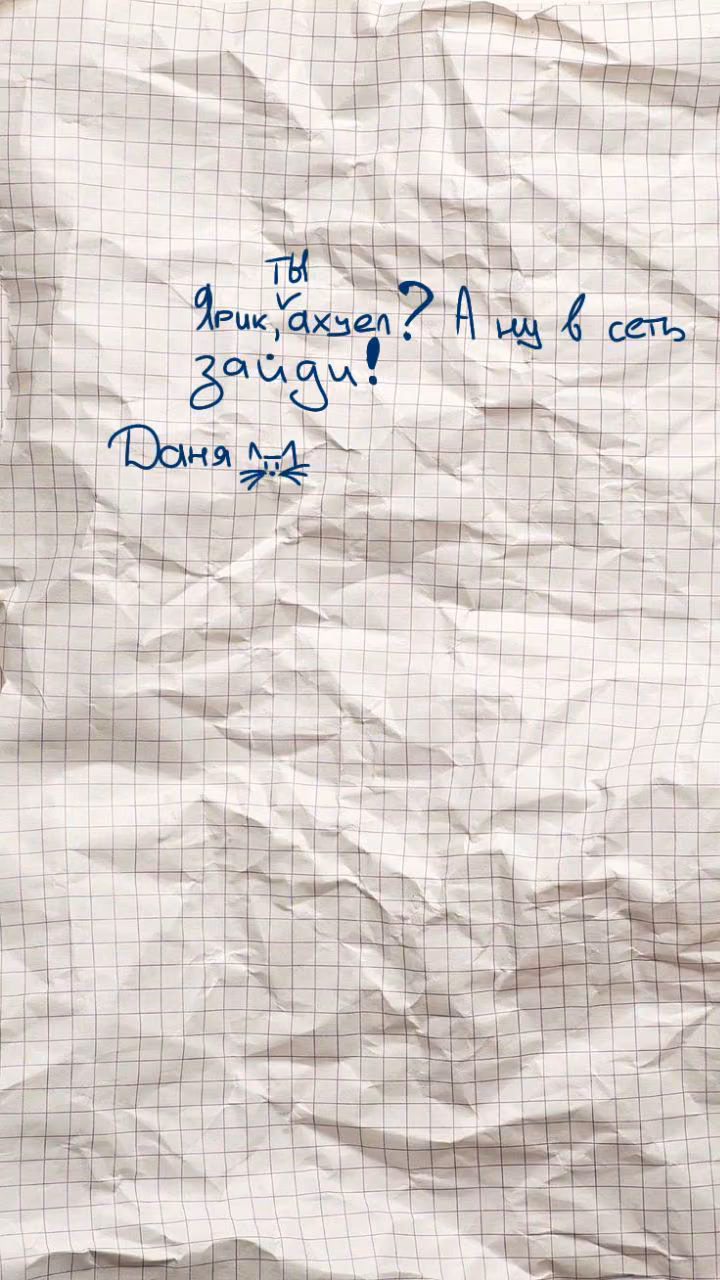 Ярик, ты ахуел? А ну в сеть
зайди!
Даня